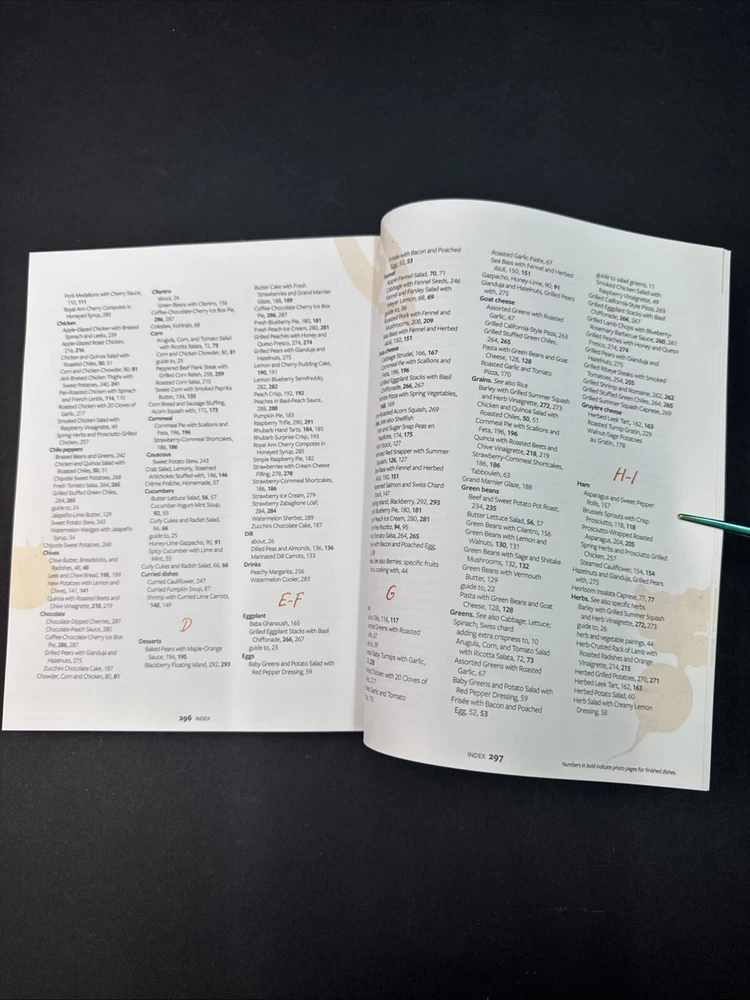 Pork Medallions with Cherry Sauce,
110, 111
Royal Ann Cherry Compotes in
Honeyed Syrup, 285
Chicken
Apple-Glazed Chicken with Braised
Spinach and Leeks, 239
Apple-Glazed Roast Chicken,
216, 216
Chicken and Quinoa Salad with
Roasted Chiles, 50, 51
Corn and Chicken Chowder, 80, 81
Jerk Braised Chicken Thighs with
Sweet Potatoes, 240, 241
Pan-Roasted Chicken in Spinach
and French Lentils, 114, 115
Roasted Chicken with 20 Cloves of
Garlic, 217
Smoked Chicken Salad with
Raspberry Vinaigrette, 49
Spring Herbs and Prosciutto Grilled
Chicken, 257
Chile peppers
Braised Beans and Greens, 242
Chicken and Quinoa Salad with
Roasted Chiles, 50, 51
Chipotle Sweet Potatoes, 268
Fresh Tomato Salsa, 264, 265
Grilled Stuffed Green Chiles,
264, 265
guide to, 24
Jalapeño-Lime Butter, 129
Sweet Potato Stew, 243
Watermelon Wedges with Jalapeño
Syrup, 54
Chipotle Sweet Potatoes, 268
Chives
Chive Butter, Breadsticks, and
Radishes, 48, 48
Leek and Chive Bread, 198, 199
New Potatoes with Lemon and
Chives, 141, 141
Quinoa with Roasted Beets and
Chive Vinaigrette, 218, 219
Chocolate
Chocolate-Dipped Cherries, 287
Chocolate-Peach Sauce, 280
Coffee-Chocolate-Cherry Ice Box
Pie, 286, 287
Grilled Pears with Gianduja and
Hazelnuts, 275
Zucchini Chocolate Cake, 187
Chowder, Corn and Chicken, 80, 81
Cilantro
about, 26
Green Beans with Cilantro, 156
Coffee-Chocolate-Cherry Ice Box Pie,
286, 287
Coleslaw, Kohlrabi, 68
Corn
Arugula, Corn, and Tomato Salad
with Ricotta Salata, 72, 73
Corn and Chicken Chowder, 80, 81
guide to, 25
Peppered Beef Flank Steak with
Grilled Corn Relish, 258, 259
Roasted Corn Salsa, 210
Sweet Corn with Smoked Paprika
Butter, 134, 135
Corn Bread and Sausage Stuffing,
Acorn Squash with, 172, 173
Cornmeal
Cornmeal Pie with Scallions and
Feta, 196, 196
Strawberry-Cornmeal Shortcakes,
186, 186
Couscous
Sweet Potato Stew, 243
Crab Salad, Lemony, Steamed
Artichokes Stuffed with, 146, 146
Crème Fraîche, Homemade, 57
Cucumbers
Butter Lettuce Salad, 56, 57
Cucumber-Yogurt Mint Soup,
92, 93
Curly Cukes and Radish Salad,
66, 66
guide to, 25
Honey-Lime Gazpacho, 90, 91
Spicy Cucumber with Lime and
Mint, 65
Curly Cukes and Radish Salad, 66, 66
Curried dishes
Curried Cauliflower, 247
Curried Pumpkin Soup, 87
Shrimp with Curried Lime Carrots,
148, 149
D
Desserts
Baked Pears with Maple-Orange
Sauce, 194, 195
Blackberry Floating Island, 292, 293
Butter Cake with Fresh
Strawberries and Grand Marnier
Glaze, 188, 189
Coffee-Chocolate-Cherry Ice Box
Pie, 286, 287
Fresh Blueberry Pie, 180, 181
Fresh Peach Ice Cream, 280, 281
Grilled Peaches with Honey and
Queso Fresco, 274, 274
Grilled Pears with Gianduja and
Hazelnuts, 275
Lemon and Cherry Pudding Cake,
190, 191
Lemon Blueberry Semifreddo,
282, 282
Peach Crisp, 192, 192
Peaches in Basil-Peach Sauce,
288, 288
Pumpkin Pie, 183
Raspberry Trifle, 290, 291
Rhubarb Hand Tarts, 184, 185
Rhubarb Surprise Crisp, 193
Royal Ann Cherry Compotes in
Honeyed Syrup, 285
Simple Raspberry Pie, 182
Strawberries with Cream Cheese
Filling, 278, 278
Strawberry-Cornmeal Shortcakes,
186, 186
Strawberry Ice Cream, 279
Strawberry Zabaglione Loaf,
284, 284
Watermelon Sherbet, 289
Zucchini Chocolate Cake, 187
Dill
about, 26
Dilled Peas and Almonds, 136, 136
Marinated Dill Carrots, 133
Drinks
Peachy Margarita, 256
Watermelon Cooler, 283
E-F
Eggplant
Baba Ghanoush, 165
Grilled Eggplant Stacks with Basil
Chiffonade, 266, 267
guide to, 23
Eggs
Baby Greens and Potato Salad with
Red Pepper Dressing, 59
296 INDEX
Frisée with Bacon and Poached
Egg, 52, 53
Apple-Fennel Salad, 70, 71
Cabbage with Fennel Seeds, 246
Fennel and Parsley Salad with
Meyer Lemon, 68, 69
Roasted Pork with Fennel and
Mushrooms, 208, 209
Bass with Fennel and Herbed
Aïoli, 150, 151
cheese
Cabbage Strudel, 166, 167
Cornmeal Pie with Scallions and
Feta, 196, 196
Grilled Eggplant Stacks with Basil
Chiffonade, 266, 267
Pizza with Spring Vegetables,
168, 169
Roasted Acorn Squash, 269
See also Shellfish
and Sugar Snap Peas en
Papillote, 174, 175
Stock, 127
Red Snapper with Summer
Squash, 126, 127
Bass with Fennel and Herbed
Aïoli, 150, 151
Salmon and Swiss Chard
Pack, 147
Island, Blackberry, 292, 293
Blueberry Pie, 180, 181
Peach Ice Cream, 280, 281
Tomato Salsa, 264, 265
with Bacon and Poached Egg,
See also Berries; specific fruits
cooking with, 44
G
116, 117
Greens with Roasted
67
Baby Turnips with Garlic,
Chicken with 20 Cloves of
Garlic and Tomato
Roasted Garlic Paste, 67
Sea Bass with Fennel and Herbed
Aïoli, 150, 151
Gazpacho, Honey-Lime, 90, 91
Gianduja and Hazelnuts, Grilled Pears
with, 275
Goat cheese
Assorted Greens with Roasted
Garlic, 67
Grilled California-Style Pizza, 263
Grilled Stuffed Green Chiles,
264, 265
Pasta with Green Beans and Goat
Cheese, 128, 128
Roasted Garlic and Tomato
Pizza, 170
Grains. See also Rice
Barley with Grilled Summer Squash
and Herb Vinaigrette, 272, 273
Chicken and Quinoa Salad with
Roasted Chiles, 50, 51
Cornmeal Pie with Scallions and
Feta, 196, 196
Quinoa with Roasted Beets and
Chive Vinaigrette, 218, 219
Strawberry-Cornmeal Shortcakes,
186, 186
Tabbouleh, 63
Grand Marnier Glaze, 188
Green beans
Beef and Sweet Potato Pot Roast,
234, 235
Butter Lettuce Salad, 56, 57
Green Beans with Cilantro, 156
Green Beans with Lemon and
Walnuts, 130, 131
Green Beans with Sage and Shiitake
Mushrooms, 132, 132
Green Beans with Vermouth
Butter, 129
guide to, 22
Pasta with Green Beans and Goat
Cheese, 128, 128
Greens. See also Cabbage; Lettuce;
Spinach; Swiss chard
adding extra crispness to, 10
Arugula, Corn, and Tomato Salad
with Ricotta Salata, 72, 73
Assorted Greens with Roasted
Garlic, 67
Baby Greens and Potato Salad with
Red Pepper Dressing, 59
Frisée with Bacon and Poached
Egg, 52, 53
guide to salad greens, 11
Smoked Chicken Salad with
Raspberry Vinaigrette, 49
Grilled California-Style Pizza, 263
Grilled Eggplant Stacks with Basil
Chiffonade, 266, 267
Grilled Lamb Chops with Blueberry-
Rosemary Barbecue Sauce, 260, 261
Grilled Peaches with Honey and Queso
Fresco, 274, 274
Grilled Pears with Gianduja and
Hazelnuts, 275
Grilled Ribeye Steaks with Smoked
Tomatoes, 254, 255
Grilled Shrimp and Romaine, 262, 262
Grilled Stuffed Green Chiles, 264, 265
Grilled Summer Squash Caprese, 269
Gruyère cheese
Herbed Leek Tart, 162, 163
Roasted Turnip Gratin, 229
Walnut-Sage Potatoes
au Gratin, 178
H-I
Ham
Asparagus and Sweet Pepper
Rolls, 157
Brussels Sprouts with Crisp
Prosciutto, 118, 118
Prosciutto-Wrapped Roasted
Asparagus, 204, 205
Spring Herbs and Prosciutto Grilled
Chicken, 257
Steamed Cauliflower, 154, 154
Hazelnuts and Gianduja, Grilled Pears
with, 275
Heirloom Insalata Caprese, 77, 77
Herbs. See also specific herbs
Barley with Grilled Summer Squash
and Herb Vinaigrette, 272, 273
guide to, 26
herb and vegetable pairings, 44
Herb-Crusted Rack of Lamb with
Roasted Radishes and Orange
Vinaigrette, 214, 215
Herbed Grilled Potatoes, 270, 271
Herbed Leek Tart, 162, 163
Herbed Potato Salad, 60
Herb Salad with Creamy Lemon
Dressing, 58
INDEX 297
Numbers in bold indicate photo pages for finished dishes.